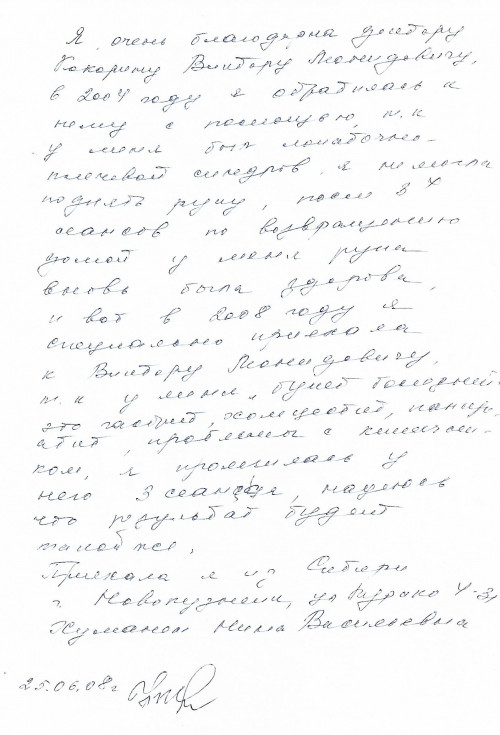 Я очень благодарна доктору
Кокорину Виктору Леонидовичу,
в 2004 году я обратилась к
нему с помощью, т.к
у меня был лопаточно-
плечевой синдром я не могла
поднять руку, после 3х
сеансов по возвращению
домой у меня рука
вновь была здорова,
и вот в 2008 году я
специально приехала
к Виктору Леонидовичу,
т.к у меня букет болезней
это гастрит, холецистит, панкре-
атит, проблемы с кишечни-
ком, я пролечилась у
него 3 сеанса, надеюсь
что результат будет
такой же.
Приехала я из Сибири
г. Новокузнецк, ул Курако 4-3,
Нина Васильевна
25.06.08 г